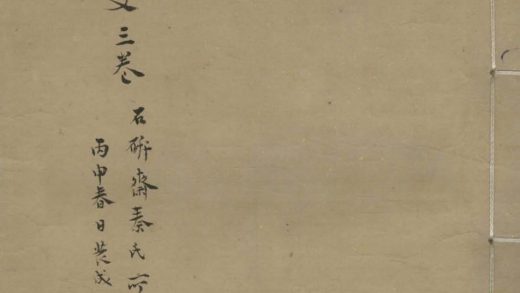 三卷
石研齋秦氏所
丙申春日裝成